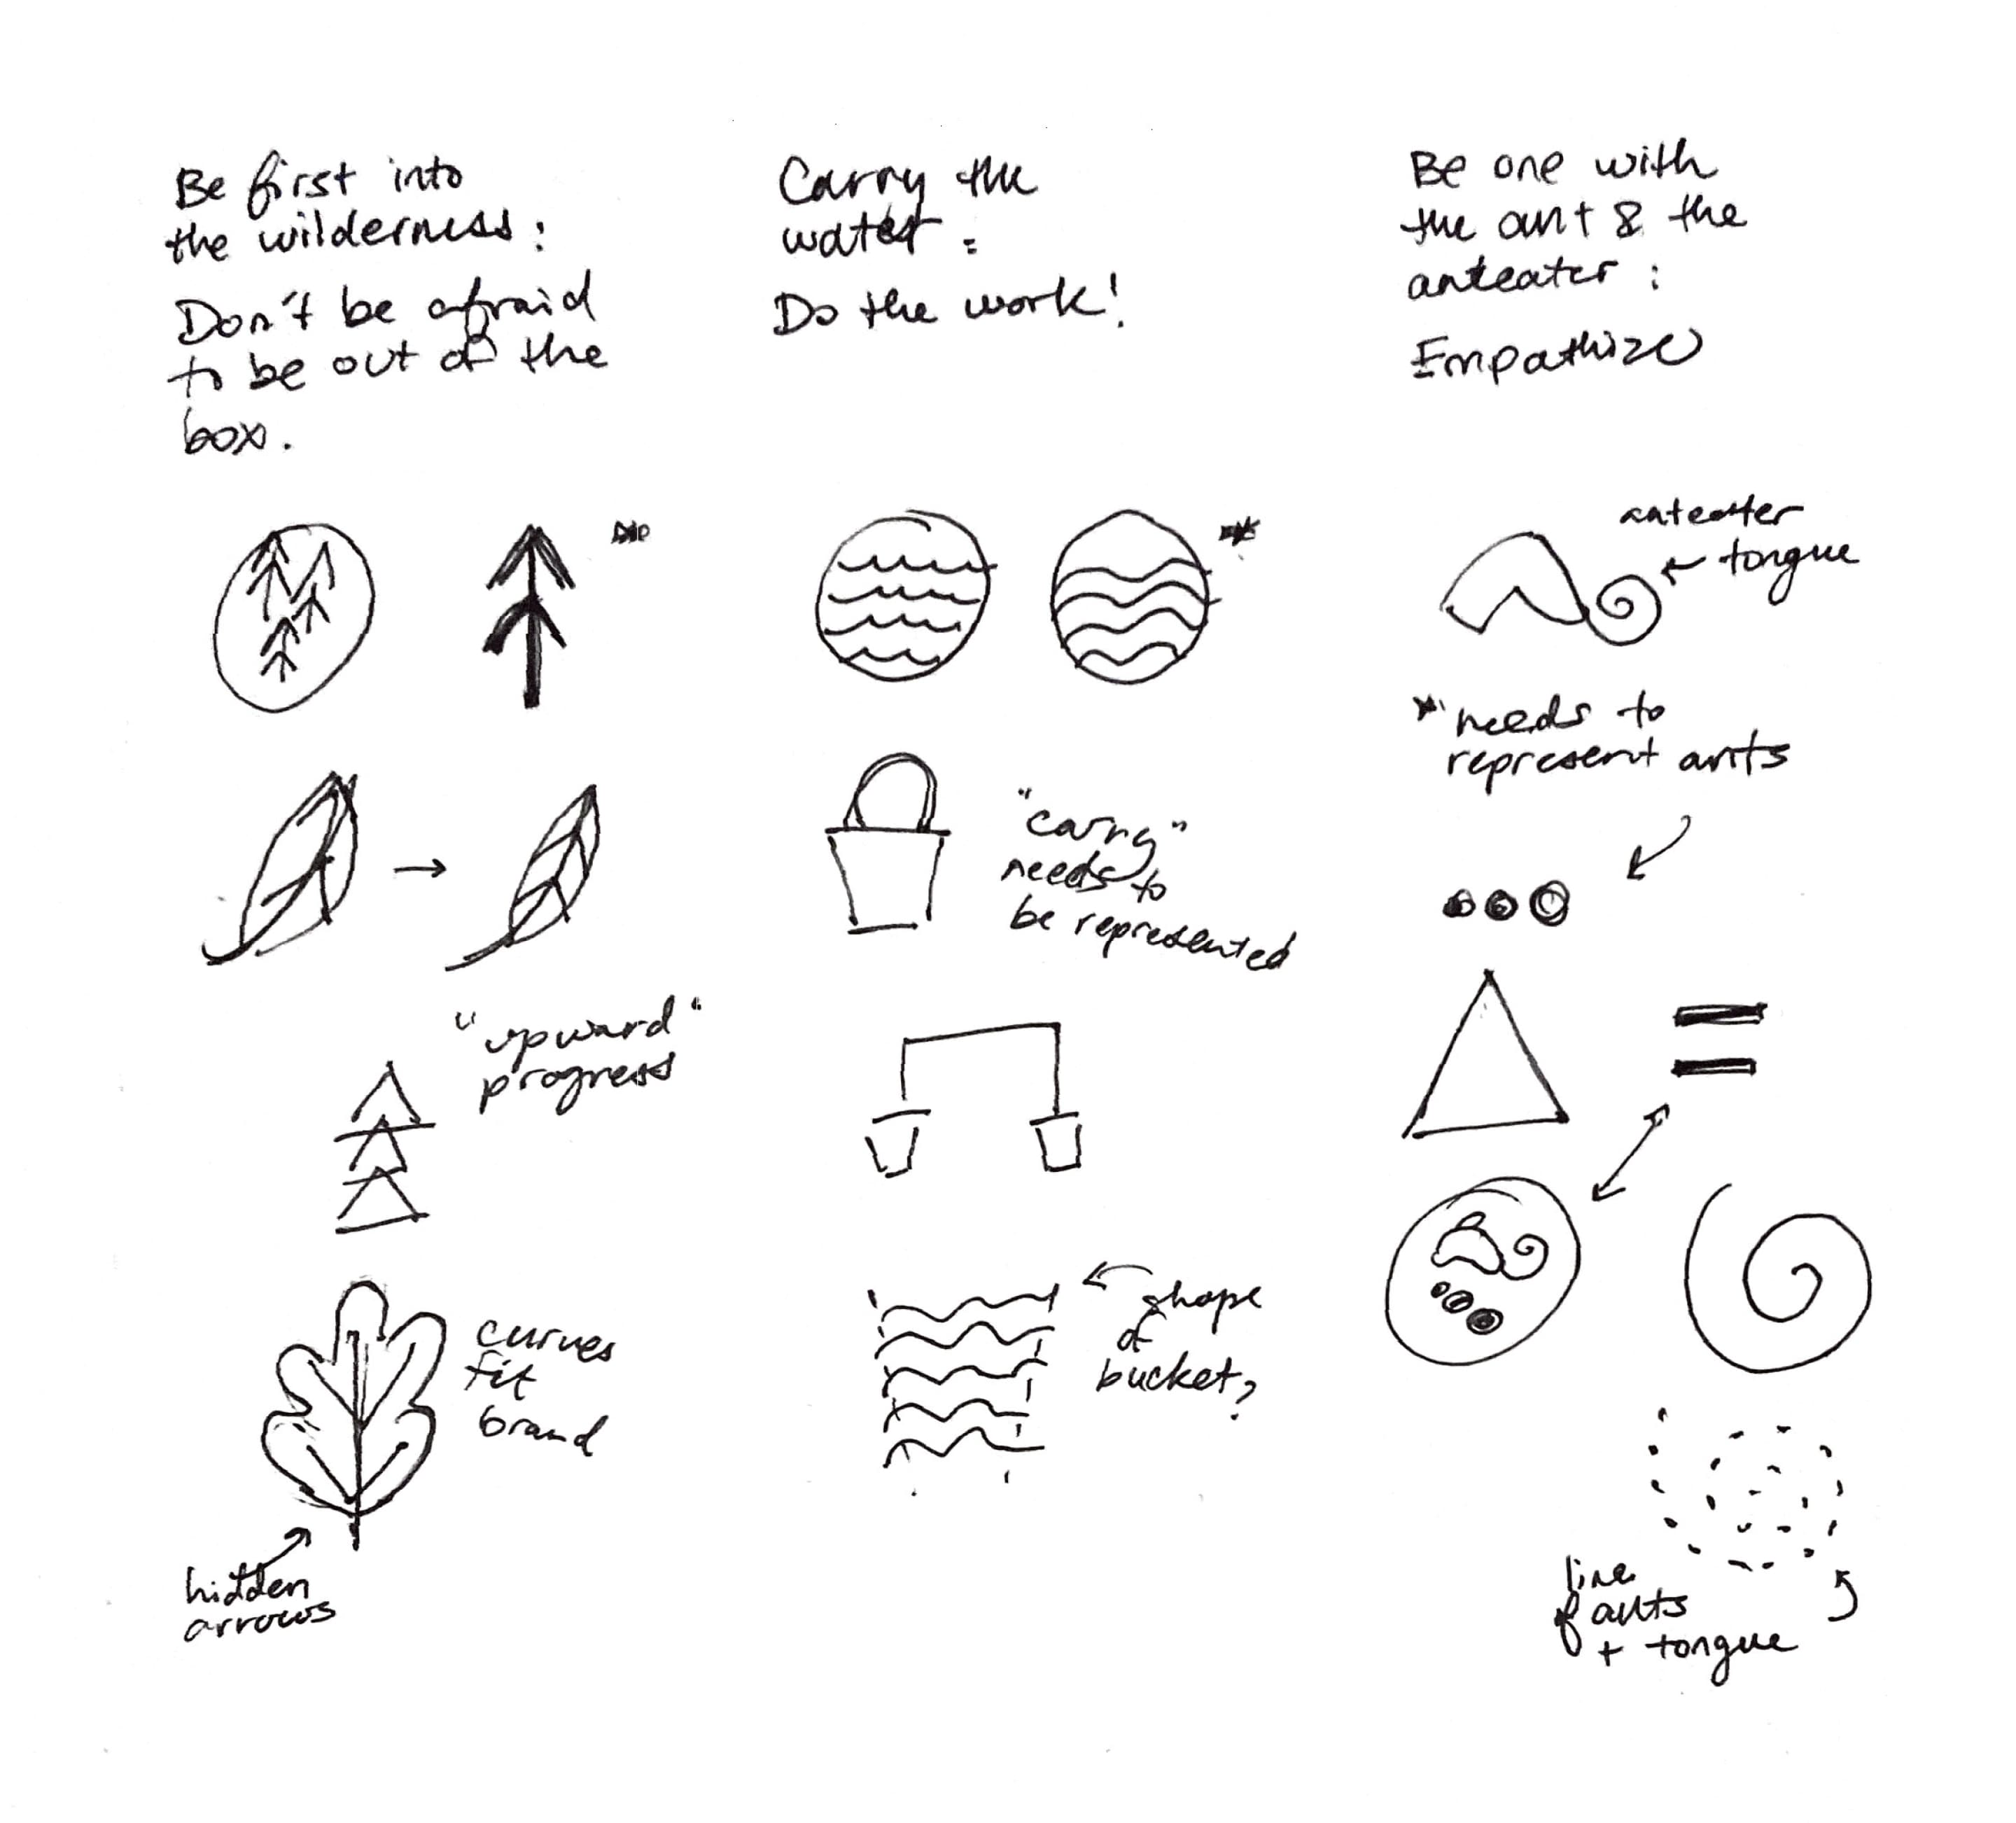 Be first into
the wilderness:
Don't be afraid
to be out of the
box.
"upward"
progress
curves
fit
brand
hidden
arrows
Carry the
water:
Do the work!
"carry"
needs to
be represented
shape
of
bucket?
Be one with
the ant & the
anteater:
Empathize
anteater
tongue
*needs to
represent ants
line
of ants
+ tongue